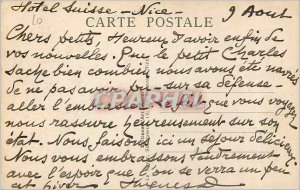 Hotel Suisse - Nice - 9 Août
CARTE POSTALE
Chers petits, Heureux d'avoir enfin de
vos nouvelles. Que le petit Charles
sache bien combien nous avons été navrés
de ne pas avoir pu sur sa défense
aller l'embrasser. que vous voyez
nous rassure heureusement sur son
état. Nous faisons ici un séjour délicieux
Nous vous embrassons tendrement
avec l'espoir que l'on se verra un peu
cet hiver.